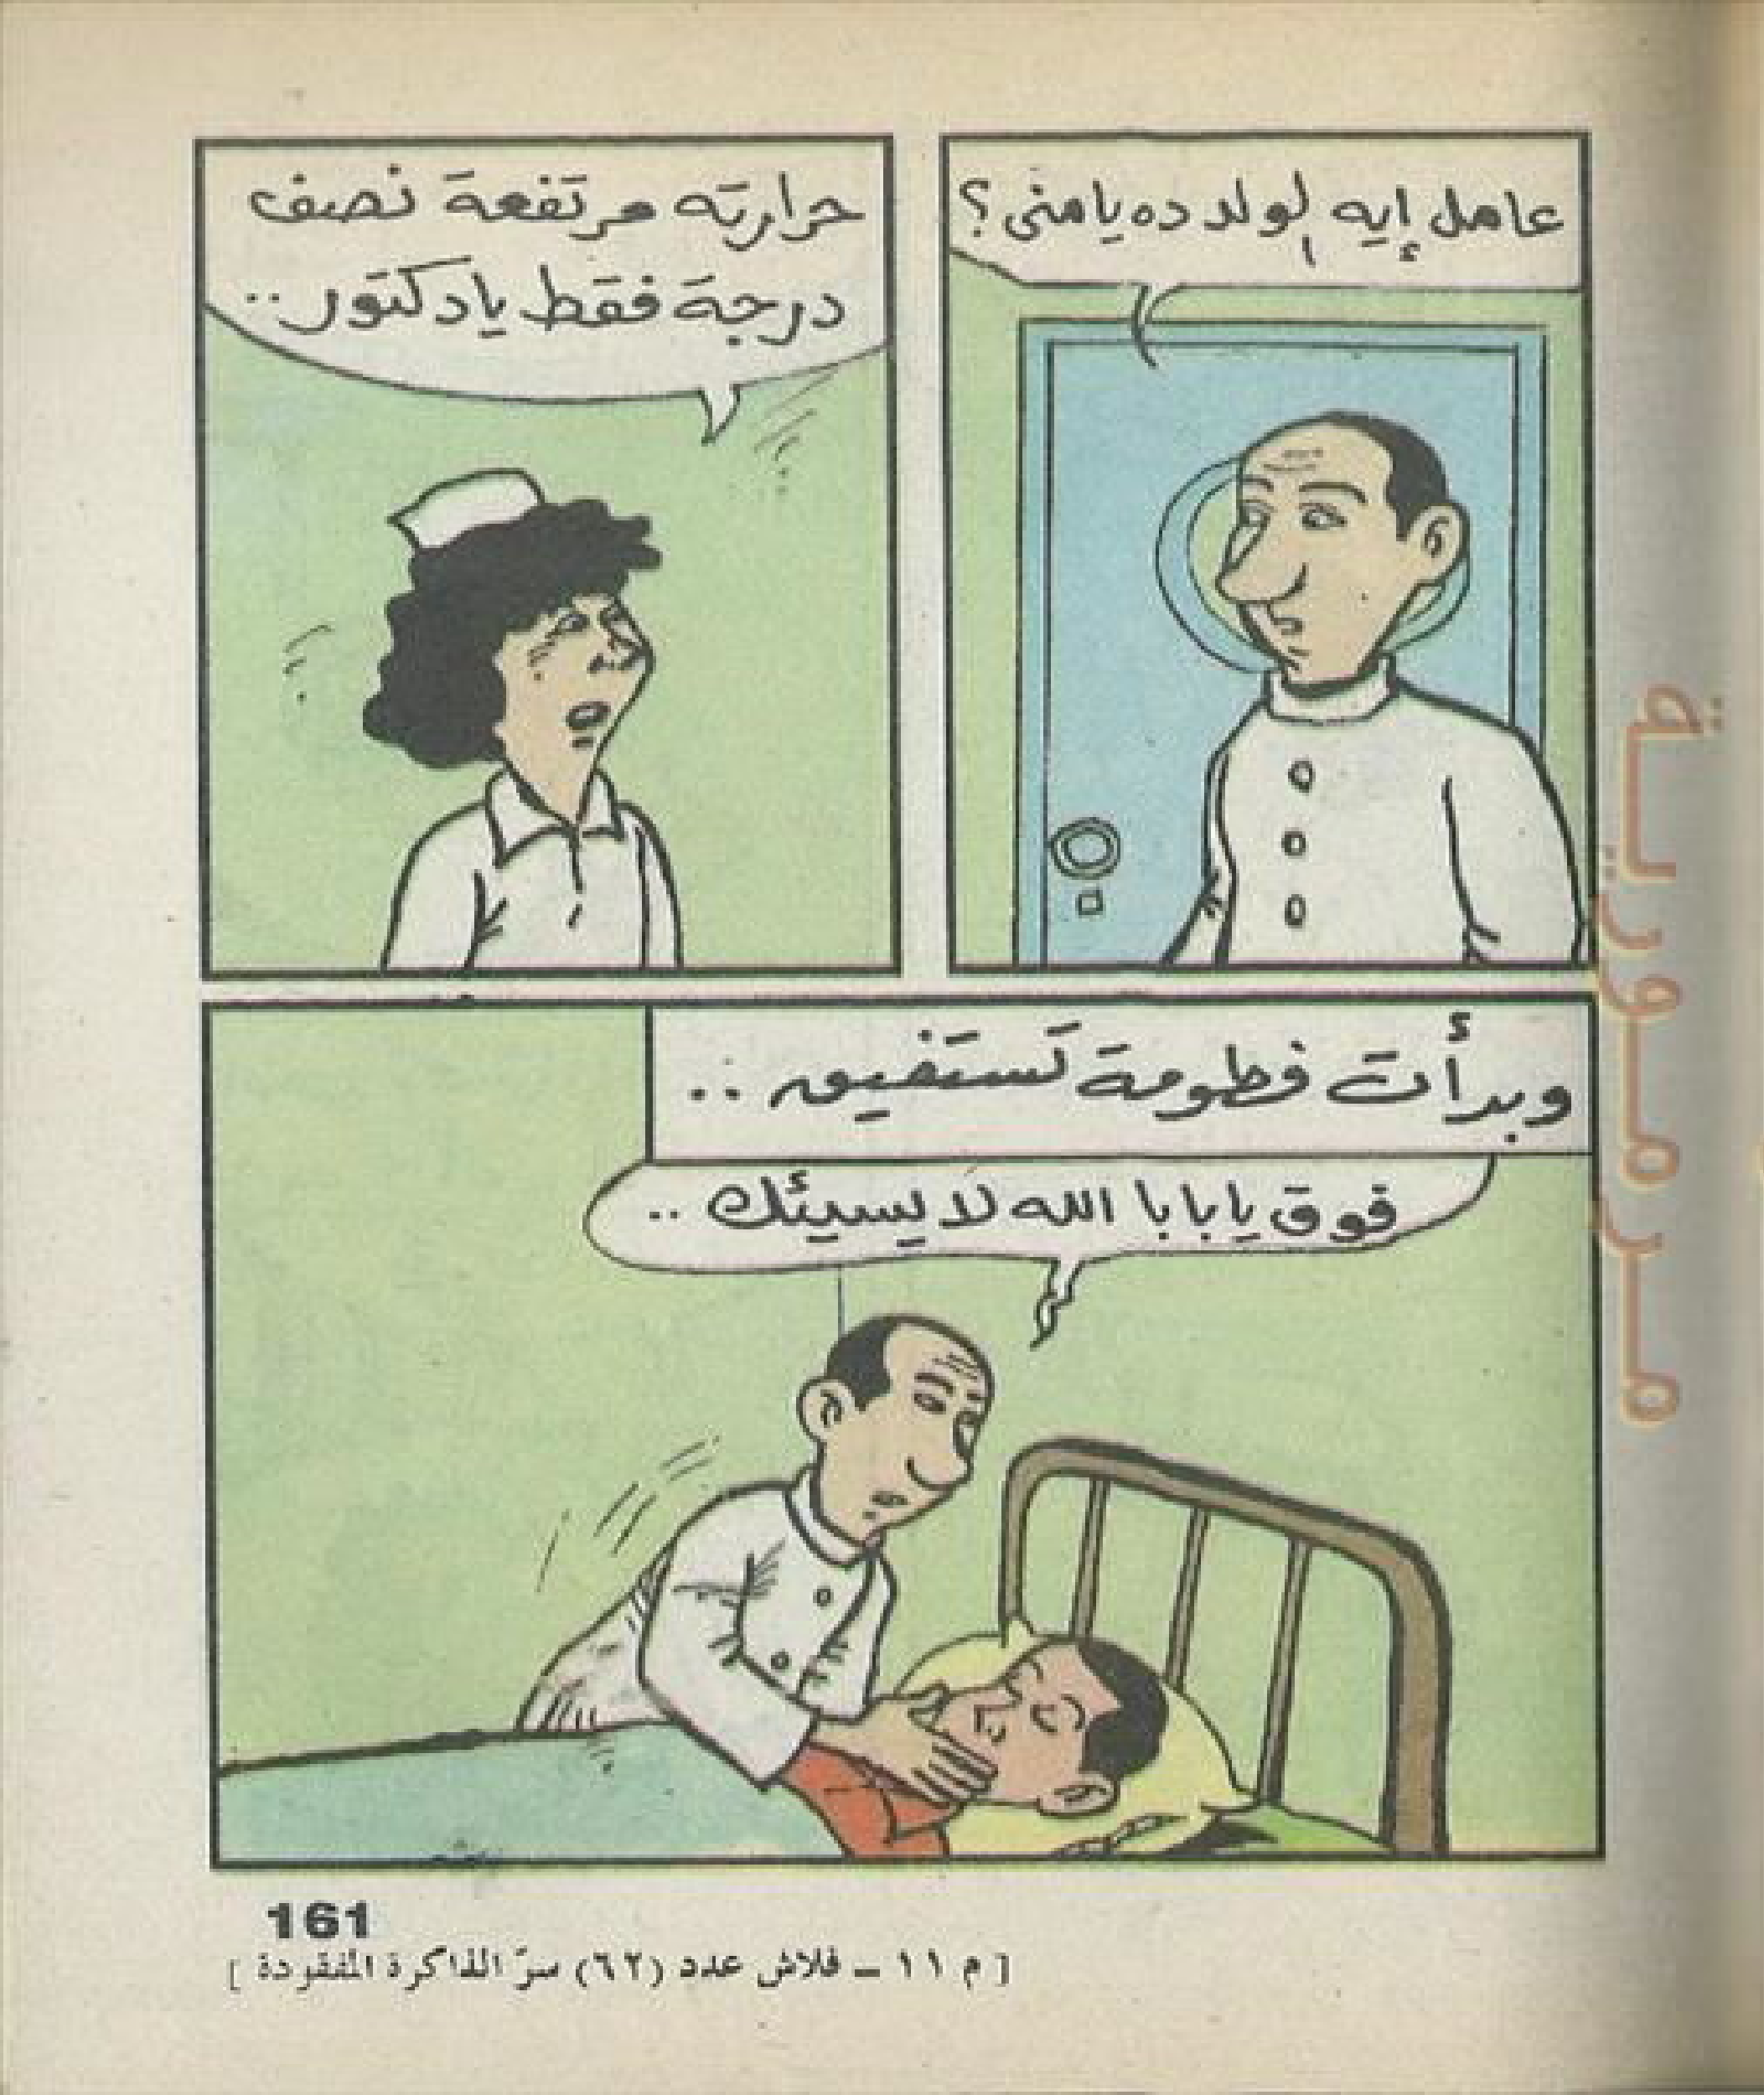 عامل إيه لولد ده يا منى؟
حرارته مرتفعة نصف
درجة فقط يا دكتور..
وبدأت فطومة تستفيق..
فوق يا بابا الله لا يسيئك..
161
[ م ١١ ــ فلاش عدد (٦٢) سرّ الذاكرة المفقودة ]
مرمورية